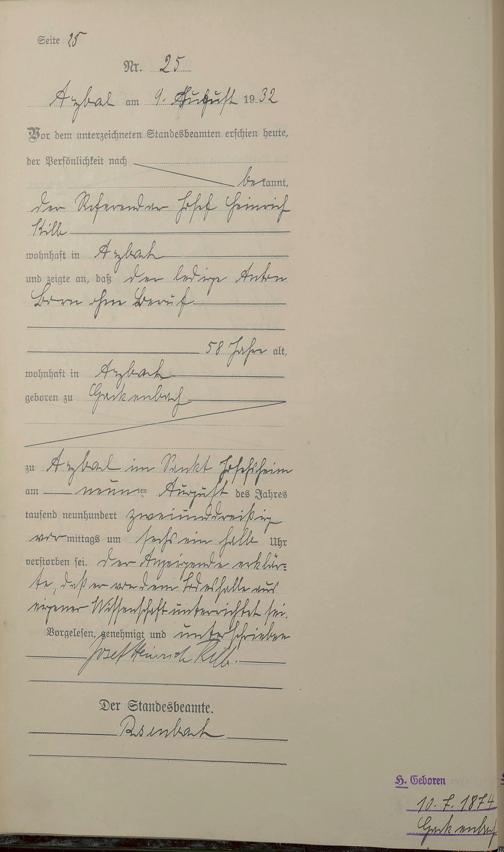 Seite 25
Nr. 25
Arzbach am 9. August 1932
Vor dem unterzeichneten Standesbeamten erschien heute,
der Persönlichkeit nach
bekannt,
der Josef Heinrich
wohnhaft in Arzbach
und zeigte an, daß der ledige Anton
Born ohne Beruf
58 Jahre alt,
wohnhaft in Arzbach
geboren zu Gackenbach
zu Arzbach im Sankt Josefsheim
am neunten August des Jahres
tausend neunhundert zweiunddreißig
vormittags um sechs ein halb Uhr
verstorben sei. Der Anzeigende erklär-
te, daß er von dem Todesfalle aus
eigener Wissenschaft unterrichtet sei.
Vorgelesen, genehmigt und unterschrieben
Josef Heinrich
Der Standesbeamte.
H. Geboren
10. 7. 1874
Gackenbach